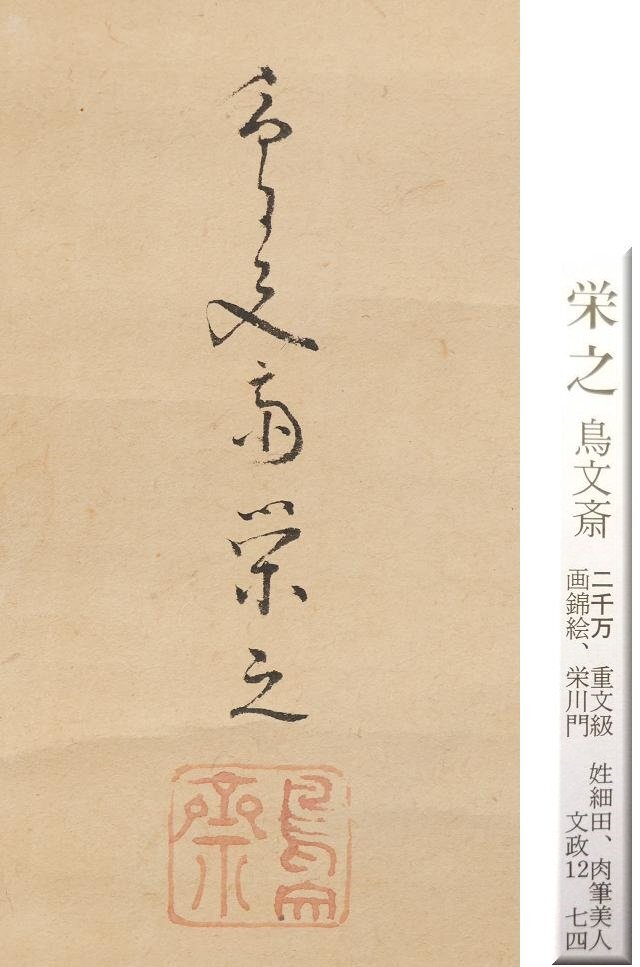 鳥文斎栄之
鳥文
齋
栄之 鳥文斎
二千万 重文級 姓細田、肉筆美人
画錦絵、栄川門 文政12 七四